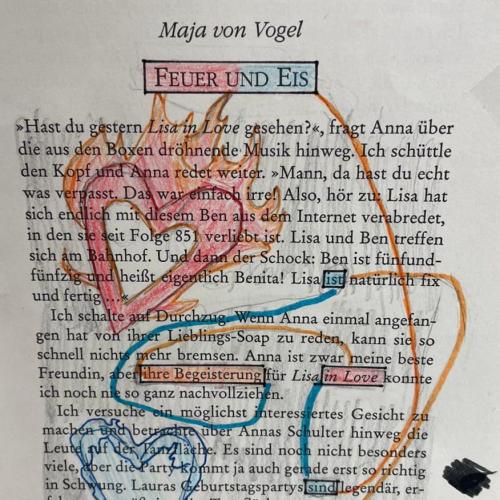 Maja von Vogel
FEUER UND EIS
»Hast du gestern Lisa in Love gesehen?«, fragt Anna über
die aus den Boxen dröhnende Musik hinweg. Ich schüttle
den Kopf und Anna redet weiter. »Mann, da hast du echt
was verpasst. Das war einfach irre! Also, hör zu: Lisa hat
sich endlich mit diesem Ben aus dem Internet verabredet,
in den sie seit Folge 851 verliebt ist. Lisa und Ben treffen
sich am Bahnhof. Und dann der Schock: Ben ist fünfund-
fünfzig und heißt eigentlich Benita! Lisa ist natürlich fix
und fertig ...«
Ich schalte auf Durchzug. Wenn Anna einmal angefan-
gen hat von ihrer Lieblings-Soap zu reden, kann sie so
schnell nichts mehr bremsen. Anna ist zwar meine beste
Freundin, aber ihre Begeisterung für Lisa in Love konnte
ich noch nie so ganz nachvollziehen.
Ich versuche ein möglichst interessiertes Gesicht zu
machen und betrachte über Annas Schulter hinweg die
Leute auf der Tanzfläche. Es sind noch nicht besonders
viele, aber die Party kommt ja auch gerade erst so richtig
in Schwung. Lauras Geburtstagspartys sind legendär, er-